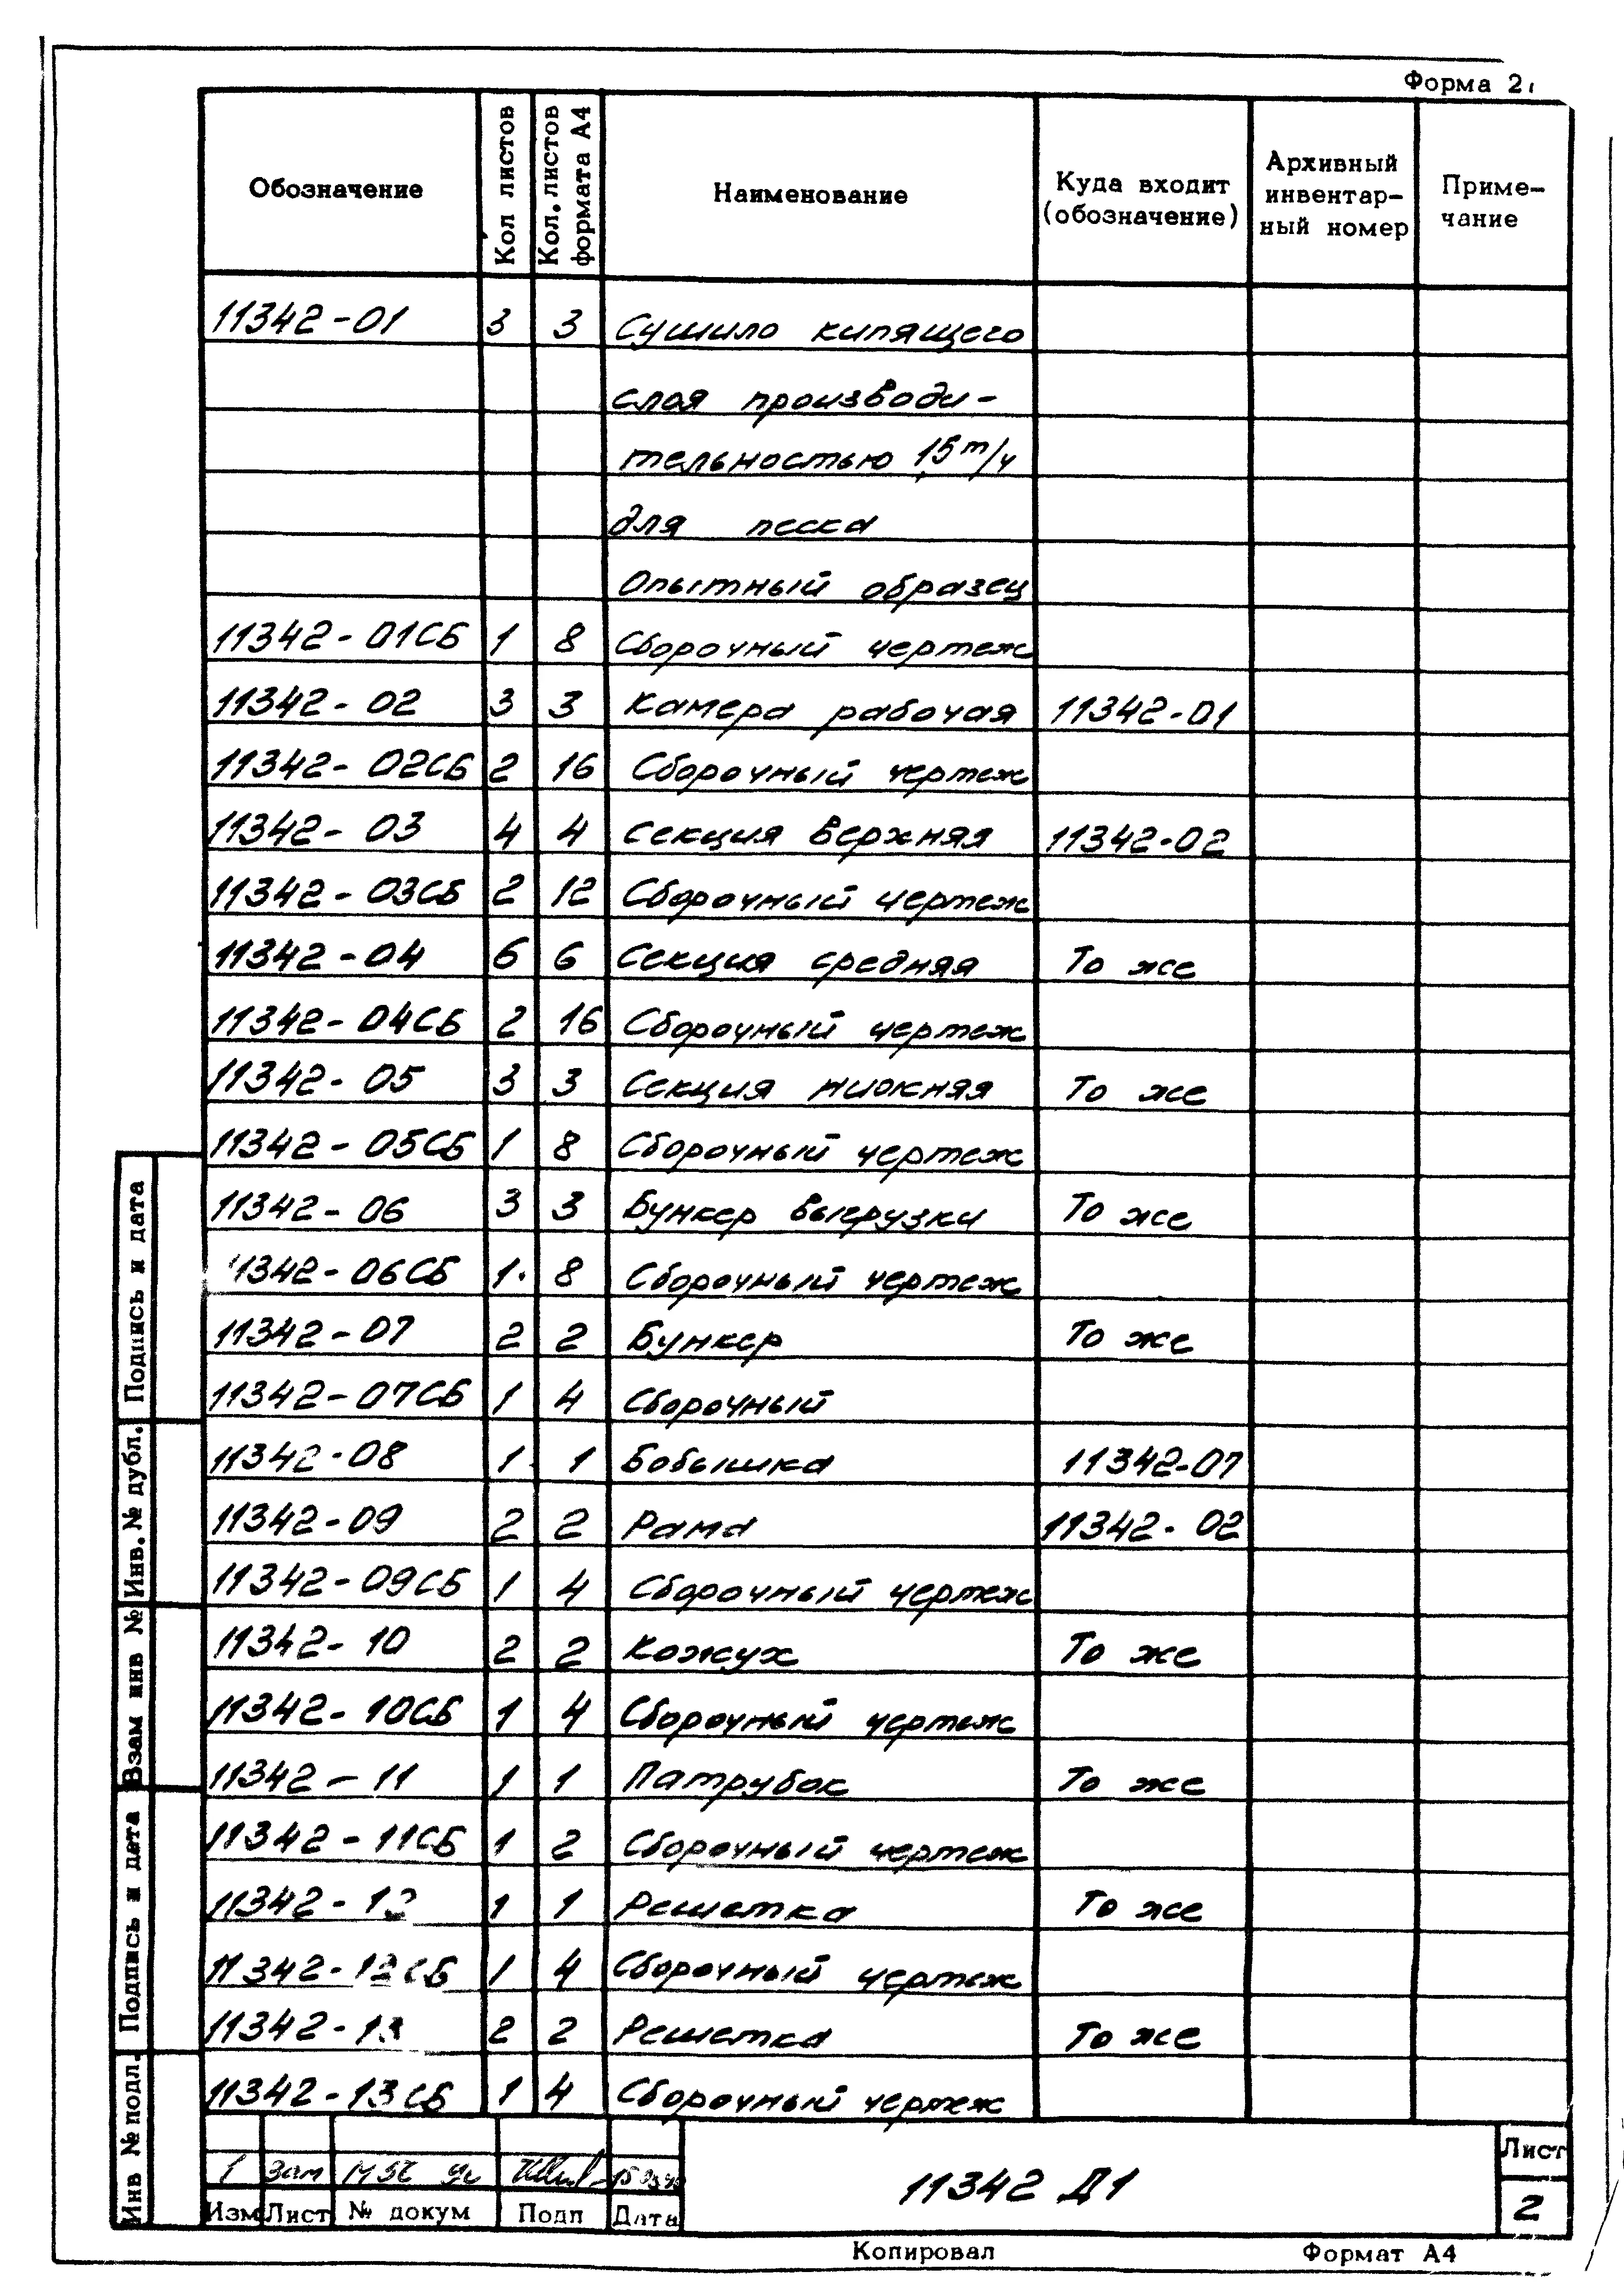 Форма 2
Обозначение Кол листов Кол. листов формата А4 Наименование Куда входит (обозначение) Архивный инвентар-ный номер Приме-чание
11342-01 3 3 Сушило кипящего
слоя производи-
тельностью 15 т/ч
для песка
Опытный образец
11342-01СБ 1 8 Сборочный чертеж
11342-02 3 3 Камера рабочая 11342-01
11342-02СБ 2 16 Сборочный чертеж
11342-03 4 4 Секция верхняя 11342-02
11342-03СБ 2 12 Сборочный чертеж
11342-04 6 6 Секция средняя То же
11342-04СБ 2 16 Сборочный чертеж
11342-05 3 3 Секция нижняя То же
11342-05СБ 1 8 Сборочный чертеж
11342-06 3 3 Бункер выгрузки То же
11342-06СБ 1 8 Сборочный чертеж
11342-07 2 2 Бункер То же
11342-07СБ 1 4 Сборочный
11342-08 1 1 Бобышка 11342-07
11342-09 2 2 Рама 11342-02
11342-09СБ 1 4 Сборочный чертеж
11342-10 2 2 Кожух То же
11342-10СБ 1 4 Сборочный чертеж
11342-11 1 1 Патрубок То же
11342-11СБ 1 2 Сборочный чертеж
11342-12 1 1 Решетка То же
11342-12СБ 1 4 Сборочный чертеж
11342-13 2 2 Решетка То же
11342-13СБ 1 4 Сборочный чертеж
Подпись и дата
Инв. № дубл.
Взам инв №
Подпись и дата
Инв № подл.
1 Зам
Изм Лист № докум Подп Дата
11342 Д1
Лист
2
Копировал Формат А4